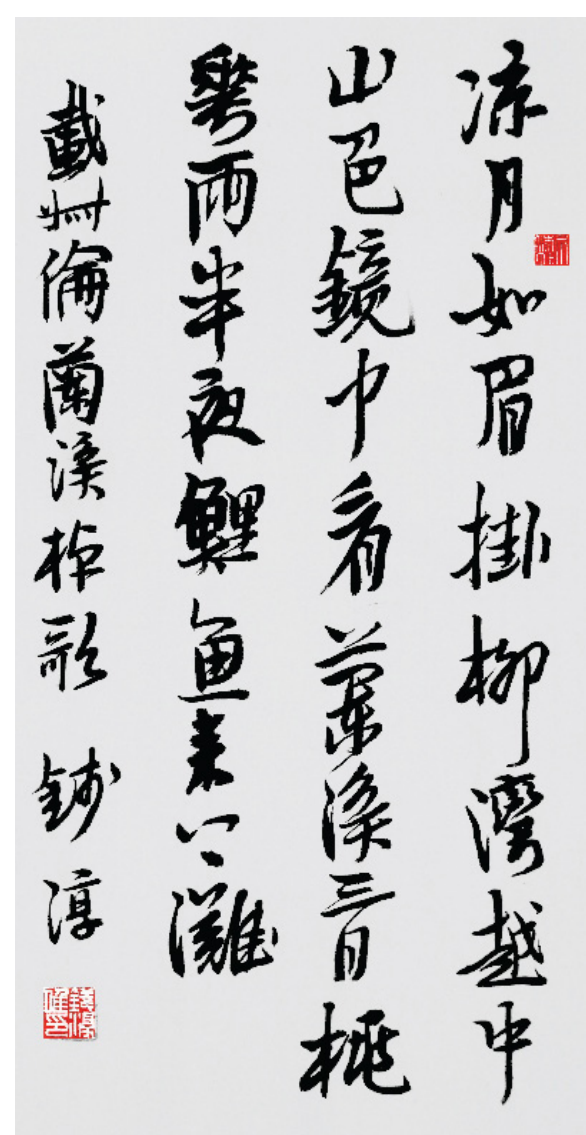 凉月如眉掛柳灣越中
山色鏡中看蘭溪三日桃
花雨半夜鯉魚來上灘
戴叔倫蘭溪棹歌 錢淳